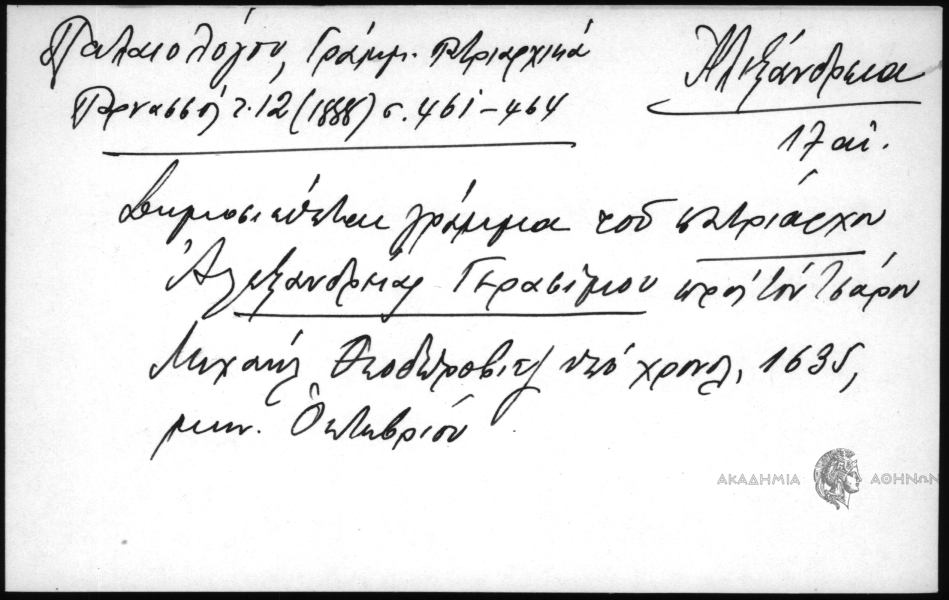 Παλαιολόγου, Γράμμ. Πατριαρχικά
Παρνασσός τ. 12 (1888) σ. 461-464
Ἀλεξάνδρεια
17 αἰ.
Δημοσιεύεται γράμμα τοῦ πατριάρχου
Ἀλεξανδρείας Γερασίμου πρός τόν Τσάρον
Μιχαήλ Θεοδώροβιτς ὑπό χρονολ. 1635,
μην. Ὀκτωβρίου
ΑΚΑΔΗΜΙΑ ΑΘΗΝΩΝ